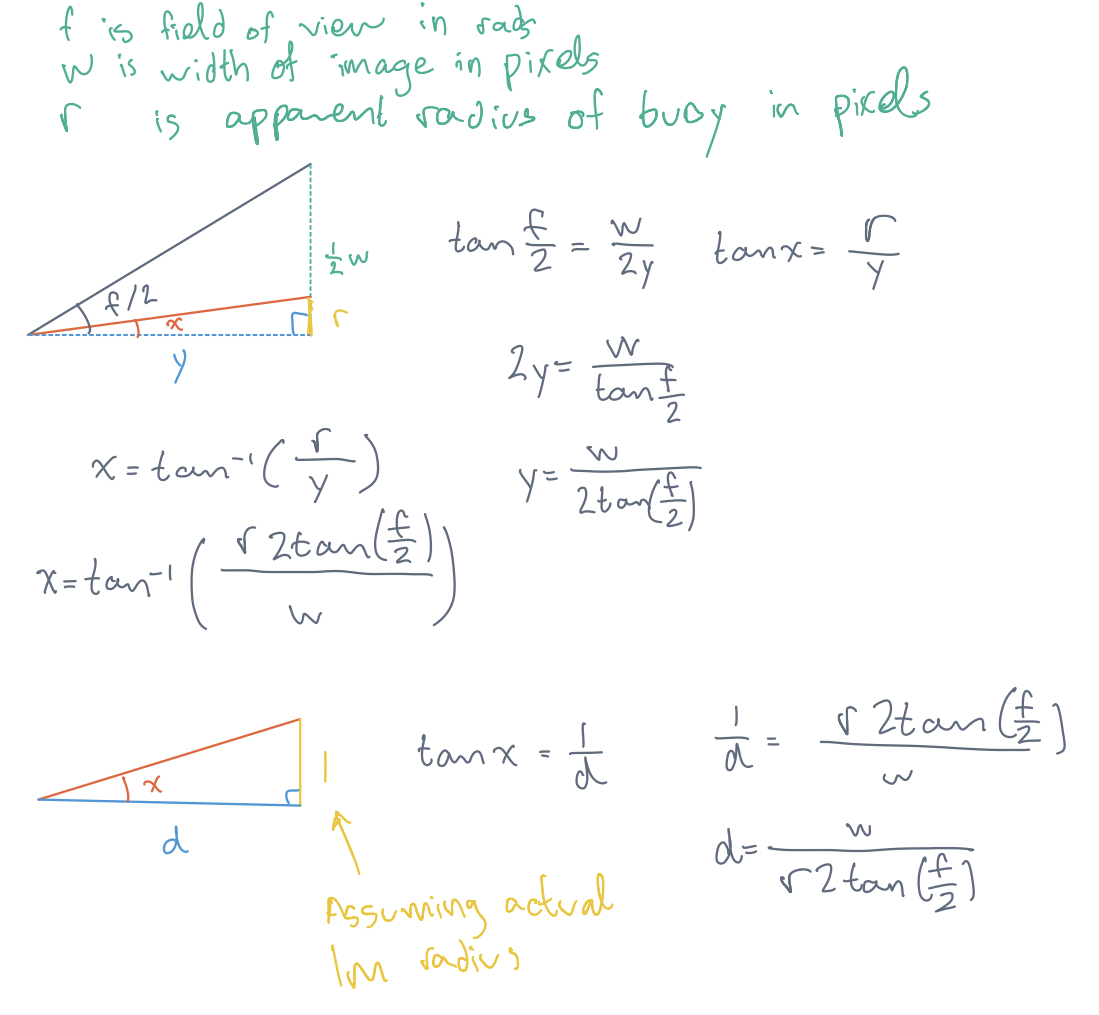 f is field of view in rads
w is width of image in pixels
r is apparent radius of buoy in pixels
f/2
x
y
1/2 w
r
tan f/2 = w/2y
tan x = r/y
2y = w/tan f/2
y = w/2tan(f/2)
x = tan⁻¹(r/y)
x = tan⁻¹(r 2tan(f/2)/w)
x
d
1
Assuming actual
1m radius
tan x = 1/d
1/d = r 2tan(f/2)/w
d = w/r 2tan(f/2)